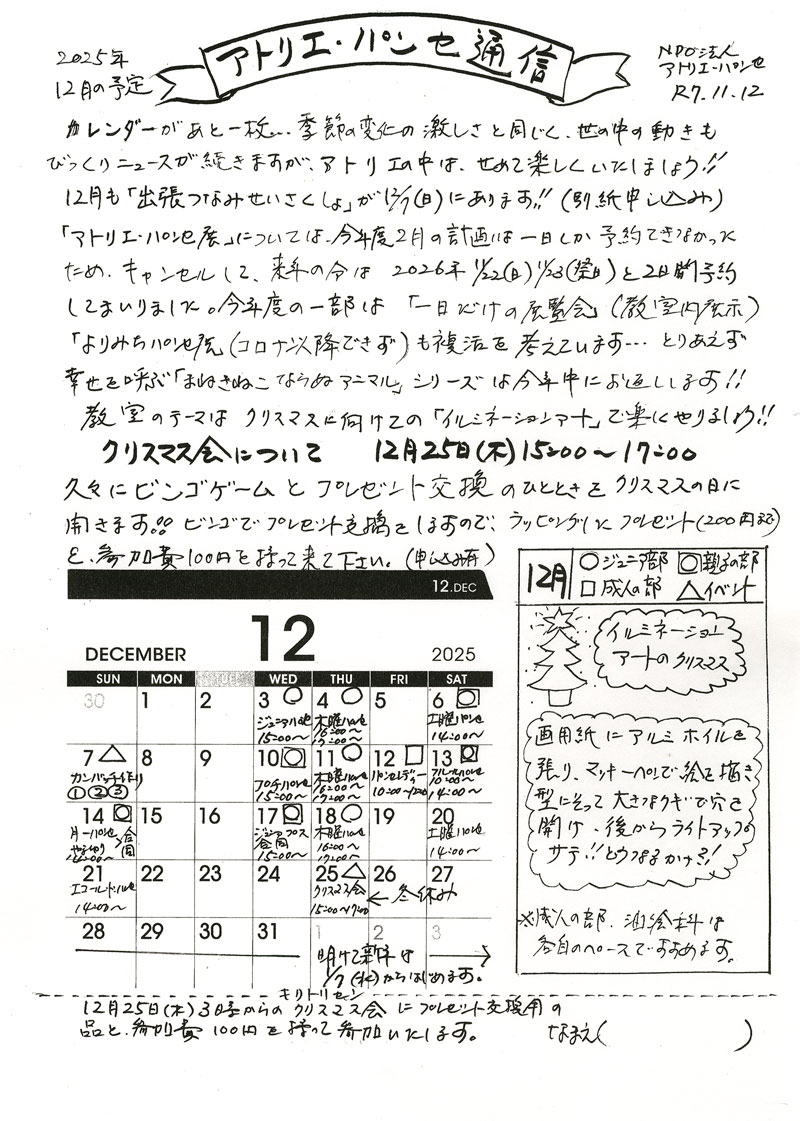 2025年
12月の予定
アトリエ・パンセ通信
NPO法人
アトリエ・パンセ
R7.11.12
カレンダーがあと一枚… 季節の変化の激しさと同じく、世の中の動きも
びっくりニュースが続きますが、アトリエの中は、せめて楽しくいたしましょう!!
12月も「出張つなみせいさくしょ」が12/7(日)にあります!!(別紙申し込み)
「アトリエ・パンセ展」については、今年度2月の計画は一日しか予約できなかった
ため、キャンセルして、来年の今は 2026年 11/22(日) 11/23(祭日)と2日間予約
してまいりました。今年度の一部は 「一日だけの展覧会」(教室内展示)
「よりみちパンセ」(コロナ以降できず)も複活を考えています… とりあえず
幸せを呼ぶ「まねきねこならぬアニマル」シリーズは今年中にお返しします!!
教室のテーマは クリスマスに向けての「イルミネーションアート」で楽しくやりましょう!!
クリスマス会について 12月25日(木)15:00〜17:00
久々にビンゴゲームとプレゼント交換のひとときをクリスマスの日に
開きます!! ビンゴでプレゼント交換をしますので、ラッピングしたプレゼント(200円まで)
と、参加費100円を持って来て下さい。(申し込み有)
12.DEC
DECEMBER 12 2025
SUN MON TUE WED THU FRI SAT
30 1 2 3 ○ 4 ○ 5 6
ジュニアパンセ 15:00〜
木曜パンセ 16:00〜 17:00〜
土曜パンセ 14:00〜
7 △ 8 9 10 11 ○ 12 □ 13
カンバッチ作り ①②③
プチパンセ 15:00〜
木曜パンセ 16:00〜 17:00〜
パンセレディー 10:00〜12:00
10:00〜 14:00〜
14 15 16 17 18 ○ 19 20
合同
合同 15:00〜
木曜パンセ 16:00〜 17:00〜
土曜パンセ 14:00〜
21 22 23 24 25 △ 26 27
エコールド・パンセ 14:00〜
クリスマス会 15:00〜17:00
← 冬休み
28 29 30 31 1 2 3
明けて新年は
1/7(水)からはじめます。
12月 ○ジュニア部 親子の部
□成人の部 △イベント
イルミネーション
アートのクリスマス
画用紙にアルミホイルを
張り、マッキーペンで絵を描き
型にそって大きなクギで穴を
開け、後からライトアップ
サテ!! どうなるかナ?!
※成人の部、油絵科は
各自のペースですすめます。
キリトリセン
12月25日(木)3時からのクリスマス会にプレゼント交換用の
品と、参加費100円を持って参加いたします。 なまえ( )